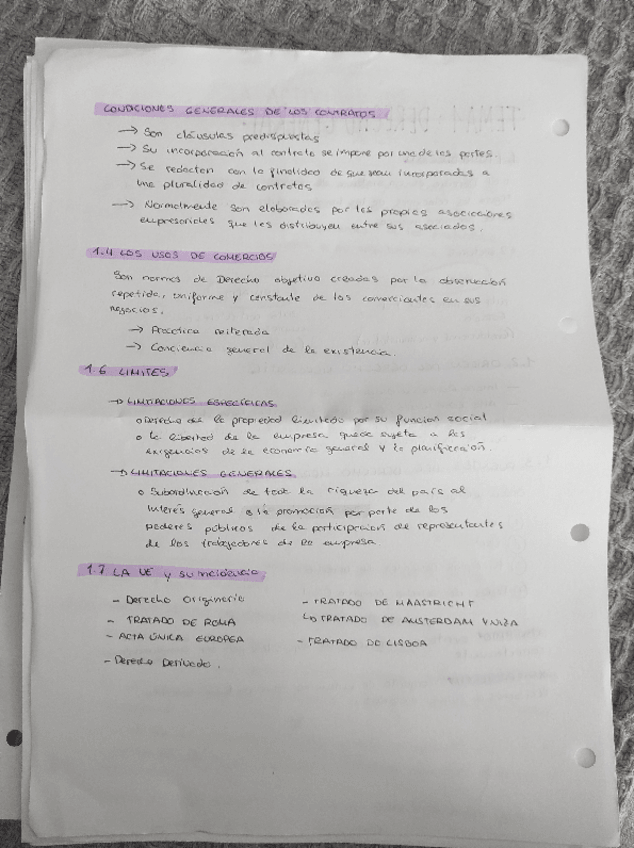 CONDICIONES GENERALES DE LOS CONTRATOS
→ Son cláusulas predispuestas
→ Su incorporación al contrato se impone por una de las partes.
→ Se redactan con la finalidad de que sean incorporadas a
una pluralidad de contratos
→ Normalmente son elaborados por las propias asociaciones
empresariales que las distribuyen entre sus asociados.
1.4 LOS USOS DE COMERCIO
Son normas de Derecho objetivo creadas por la observación
repetida, uniforme y constante de los comerciantes en sus
negocios.
→ Práctica reiterada
→ Conciencia general de la existencia.
1.6 LIMITES
→ LIMITACIONES ESPECÍFICAS
o Derecho de la propiedad limitado por su función social
o la libertad de la empresa queda sujeta a las
exigencias de la economía general y la planificación.
→ LIMITACIONES GENERALES
o Subordinación de toda la riqueza del país al
interés general o la promoción por parte de los
poderes públicos de la participación de representantes
de los trabajadores de la empresa.
1.7 LA UE y su incidencia
- Derecho Originario
- TRATADO DE ROMA
- ACTA ÚNICA EUROPEA
- Derecho Derivado.
- TRATADO DE MAASTRICHT
↳ TRATADO DE AMSTERDAM Y NIZA
- TRATADO DE LISBOA